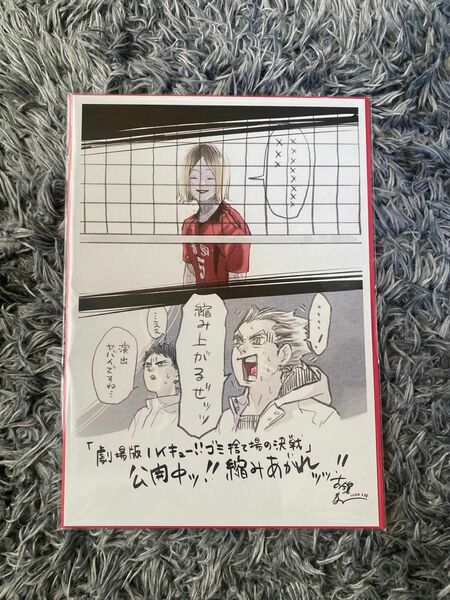 ……!
縮み上がるぜッッ
演出
ヤバイですね…
「劇場版ハイキュー!!ゴミ捨て場の決戦」
公開中ッ!! 縮みあがれッッ!!